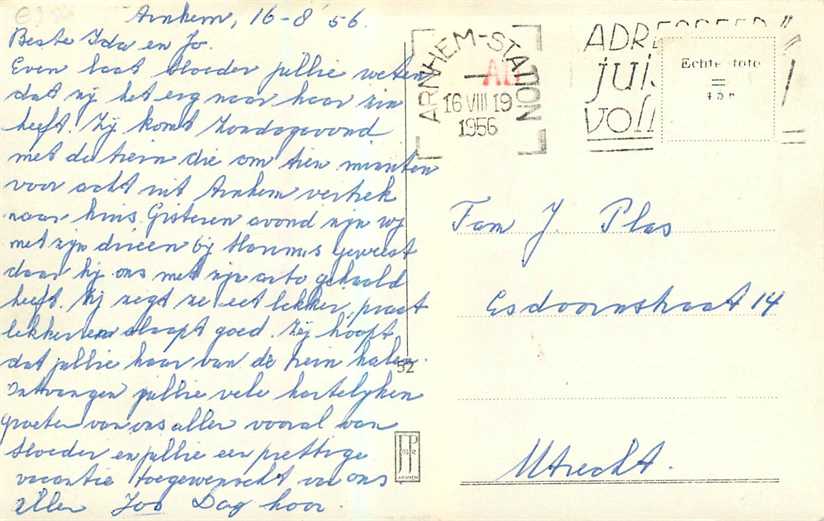 Arnhem, 16-8'56.
Beste Ida en Jo.
Even laat Moeder jullie weten
dat zij het erg naar haar zin
heeft. Zij komt Zondagavond
met de trein die om tien minuten
voor acht uit Arnhem vertrek
naar huis. Gisteren avond zijn wij
met zijn drieen bij geweest
daar hij ons met zijn auto gehaald
heeft. Zij zegt ze eet lekker, praat
lekker en slaapt goed. Zij hoopt
dat jullie haar van de trein halen.
Ontvangen jullie vele hartelijken
groeten van ons allen vooral van
Moeder en jullie een prettige
vacantie toegewenscht van ons
allen Joo Dag hoor.
ARNHEM-STATION
16 VIII 19
1956
ADRESSEER
juis
voll
Echte foto
=
52
JP
ARNHEM
Fam J. Plas
Esdoornstraat 14
Utrecht.